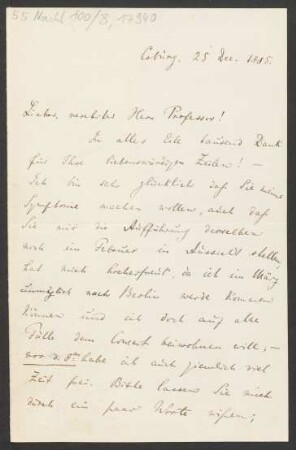 55 Nachl 100/B, 17940
Coburg, 25 Dec. 1885.
Lieber, verehrter Herr Professor!
In aller Eile tausend Dank
für Ihre liebenswürdigen Zeilen! –
Ich bin sehr glücklich daß Sie meine
Symphonie machen wollen, auch daß
Sie mir die Aufführung derselben
noch im Februar in Aussicht stellen
hat mich hocherfreut, da ich im März
unmöglich nach Berlin werde kommen
können und ich doch auf alle
Fälle dem Concert beiwohnen will; –
vor d. 8ten habe ich auch ziemlich viel
Zeit frei. Bitte lassen Sie mich
durch ein paar Worte wissen,